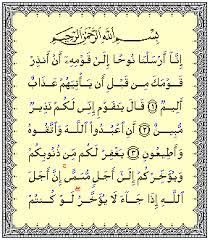 بِسْمِ ٱللَّهِ ٱلرَّحْمَٰنِ ٱلرَّحِيمِ
إِنَّآ أَرْسَلْنَا نُوحًا إِلَىٰ قَوْمِهِۦٓ أَنْ أَنذِرْ
قَوْمَكَ مِن قَبْلِ أَن يَأْتِيَهُمْ عَذَابٌ
أَلِيمٌ ۝١ قَالَ يَٰقَوْمِ إِنِّى لَكُمْ نَذِيرٌ
مُّبِينٌ ۝٢ أَنِ ٱعْبُدُوا۟ ٱللَّهَ وَٱتَّقُوهُ
وَأَطِيعُونِ ۝٣ يَغْفِرْ لَكُم مِّن ذُنُوبِكُمْ
وَيُؤَخِّرْكُمْ إِلَىٰٓ أَجَلٍ مُّسَمًّى إِنَّ أَجَلَ
ٱللَّهِ إِذَا جَآءَ لَا يُؤَخَّرُ لَوْ كُنتُمْ